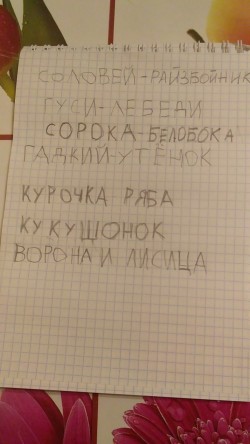 СОЛОВЕЙ-РАЙЗБОЙНИК
ГУСИ-ЛЕБЕДИ
СОРОКА-БЕЛОБОКА
ГАДКИЙ-УТЁНОК
КУРОЧКА РЯБА
КУКУШОНОК
ВОРОНА И ЛИСИЦА